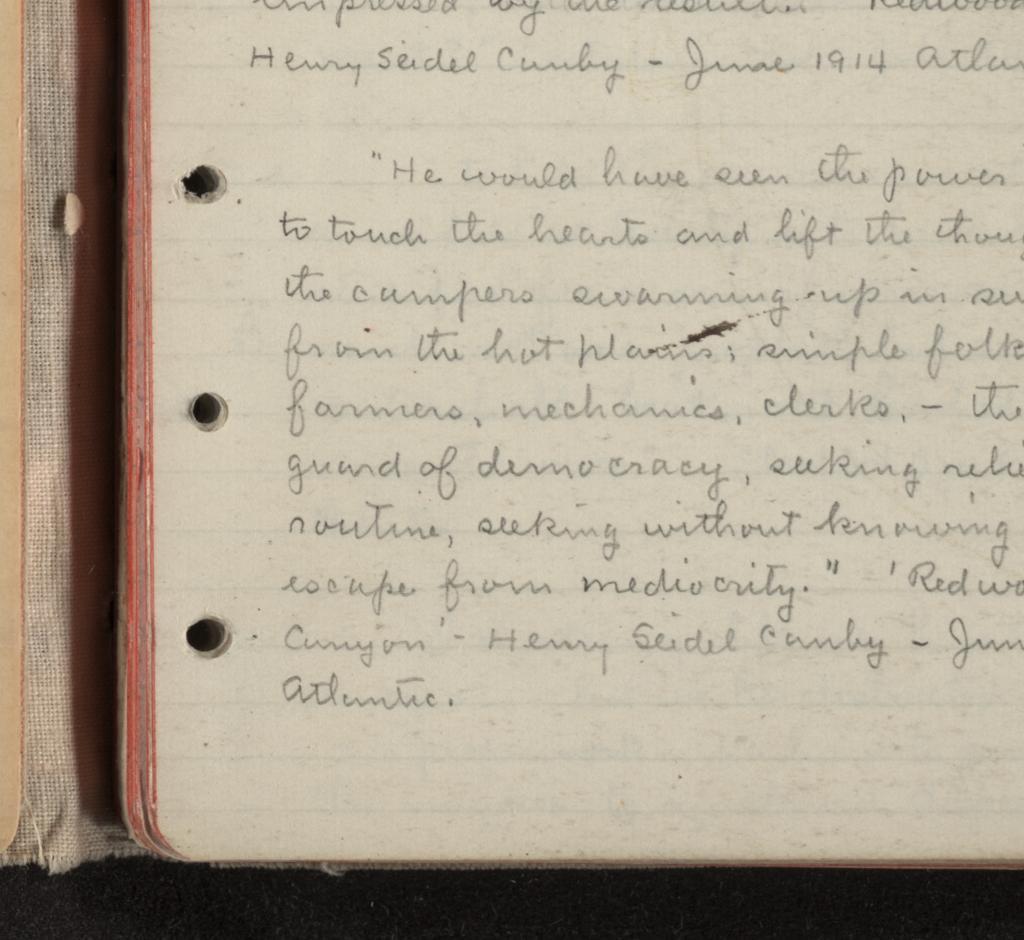 impressed by the result." 'Redwood
Henry Seidel Canby - June 1914 Atlan
"He would have seen the power
to touch the hearts and lift the thoug
the campers swarming up in su
from the hot plains; simple folk
farmers, mechanics, clerks, - the
guard of democracy, seeking relie
routine, seeking without knowing
escape from mediocrity." 'Redwo
Canyon' - Henry Seidel Canby - Jun
Atlantic.